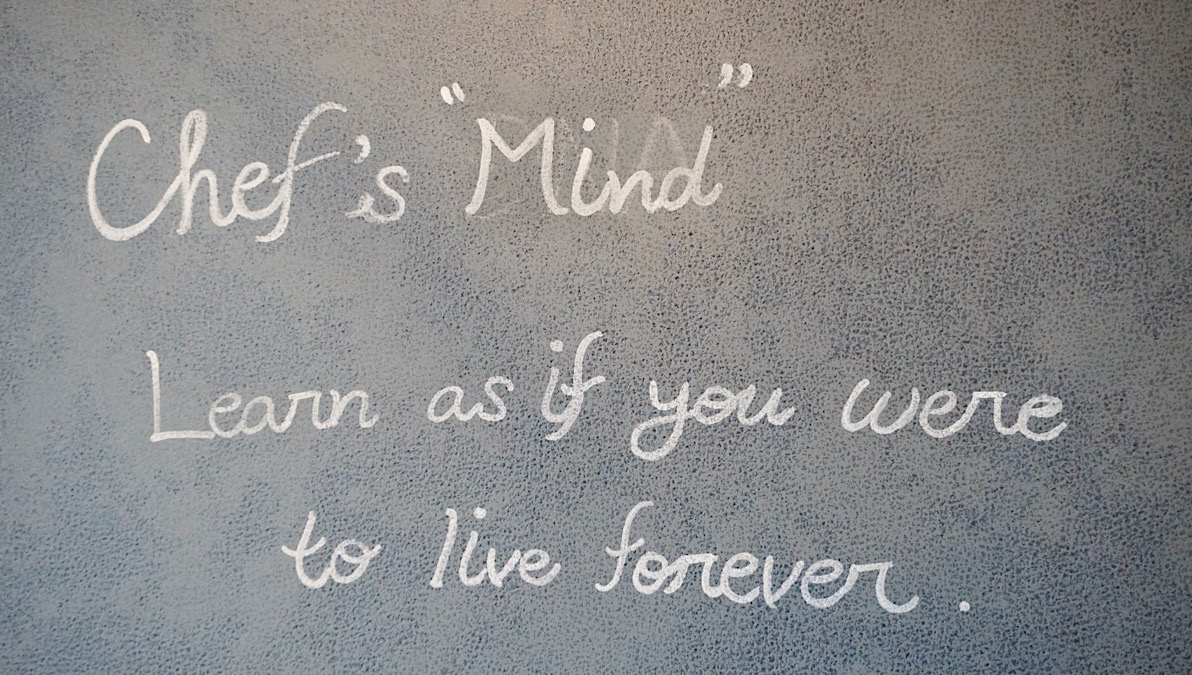 Chef's "Mind"
Learn as if you were
to live forever.